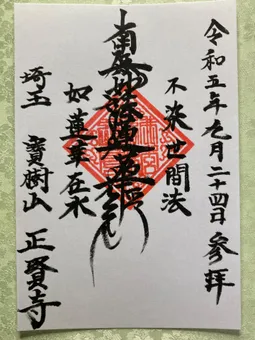 令和五年九月二十四日参拜
不染世間法
南無妙法蓮華経
如蓮華在水
埼玉 寶樹山 正賢寺